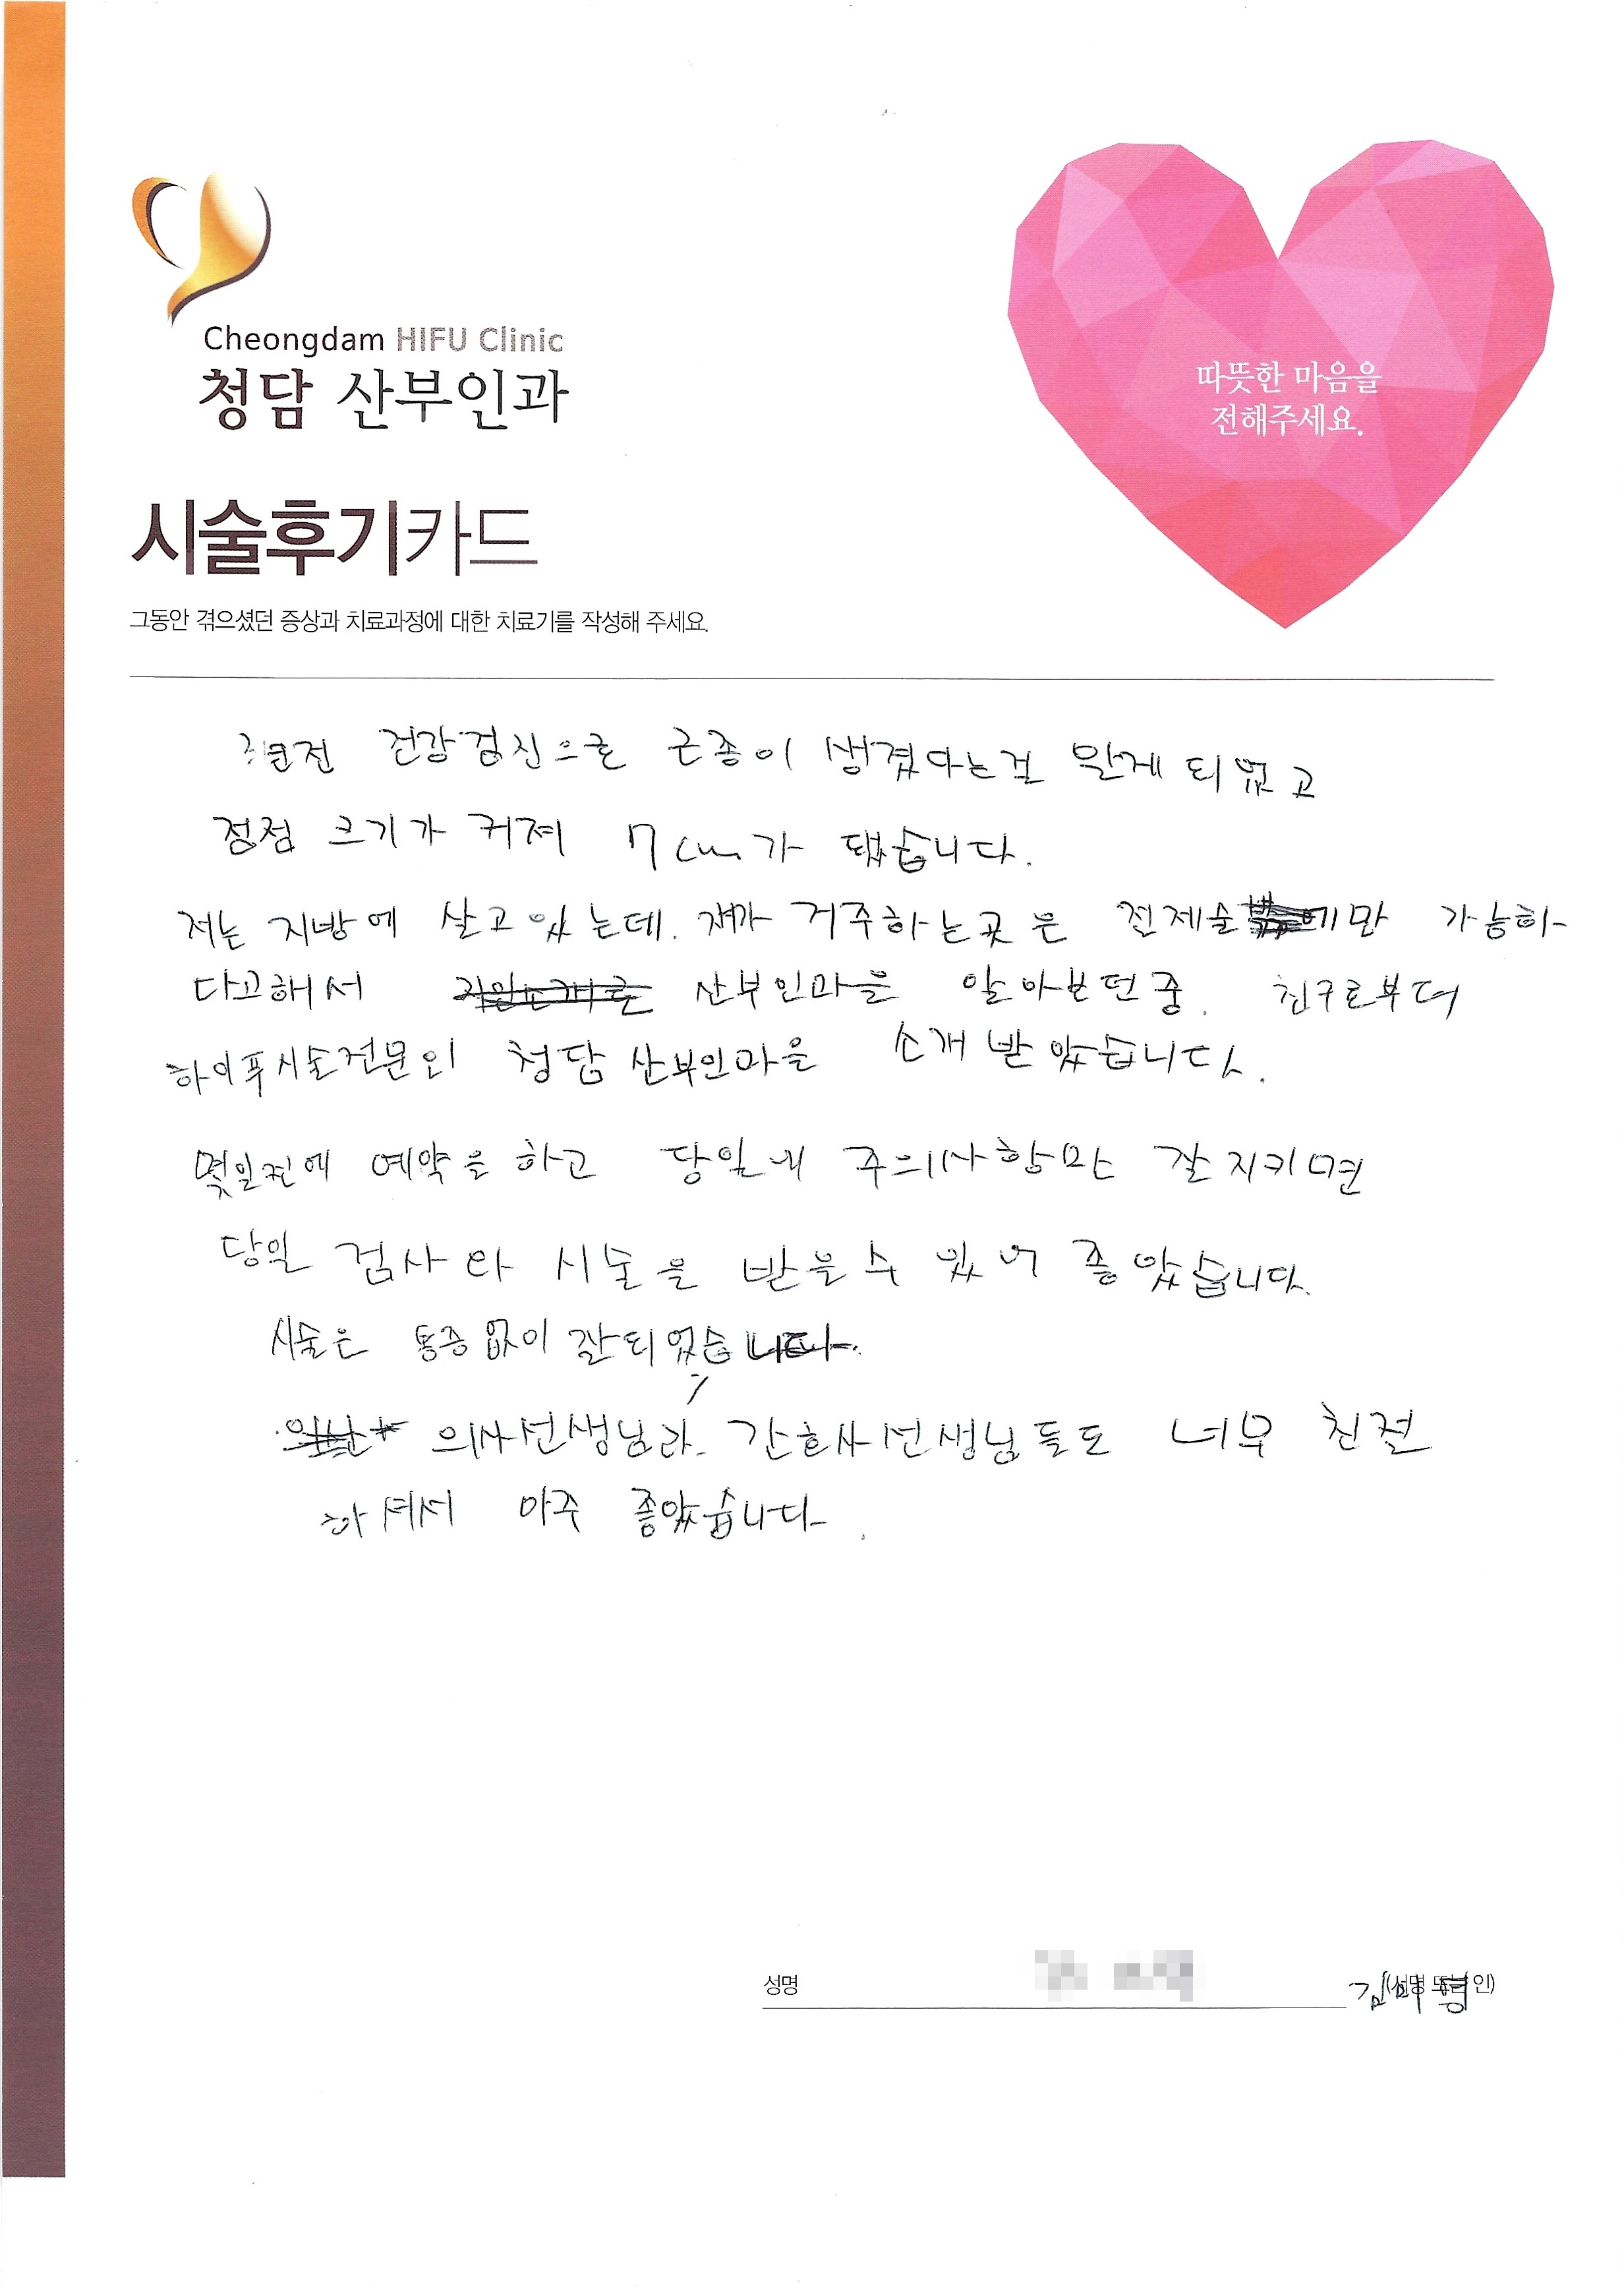 Cheongdam HIFU Clinic
청담 산부인과
따뜻한 마음을
전해주세요.
시술후기카드
그동안 겪으셨던 증상과 치료과정에 대한 치료기를 작성해 주세요.
건강검진으로 근종이 생겼다는걸 알게 되었고
점점 크기가 커져 7cm가 됐습니다.
저는 지방에 살고있는데. 제가 거주하는곳은 전제술에만 가능하
다고해서 산부인과을 알아보던중. 친구로부터
하이푸시술전문인 청담 산부인과을 소개 받았습니다.
몇일전에 예약을 하고 당일내 주의사항만 잘 지키면
당일 검사와 시술을 받을수 있어 좋았습니다.
시술은 통증없이 잘되었습니다.
의사선생님과. 간호사선생님들도 너무 친절
하셔서 아주 좋았습니다.
성명